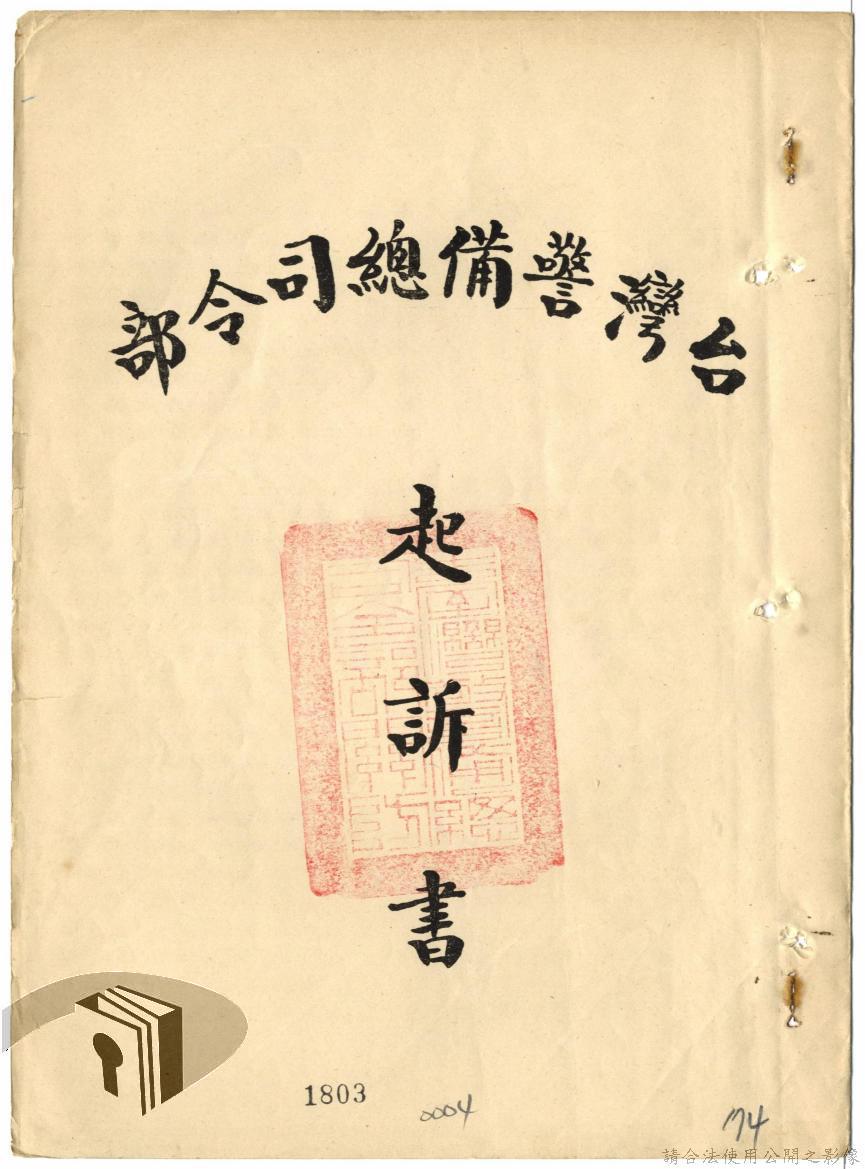 台灣警備總司令部
起訴書
1803
0004
174
請合法使用公開之影像